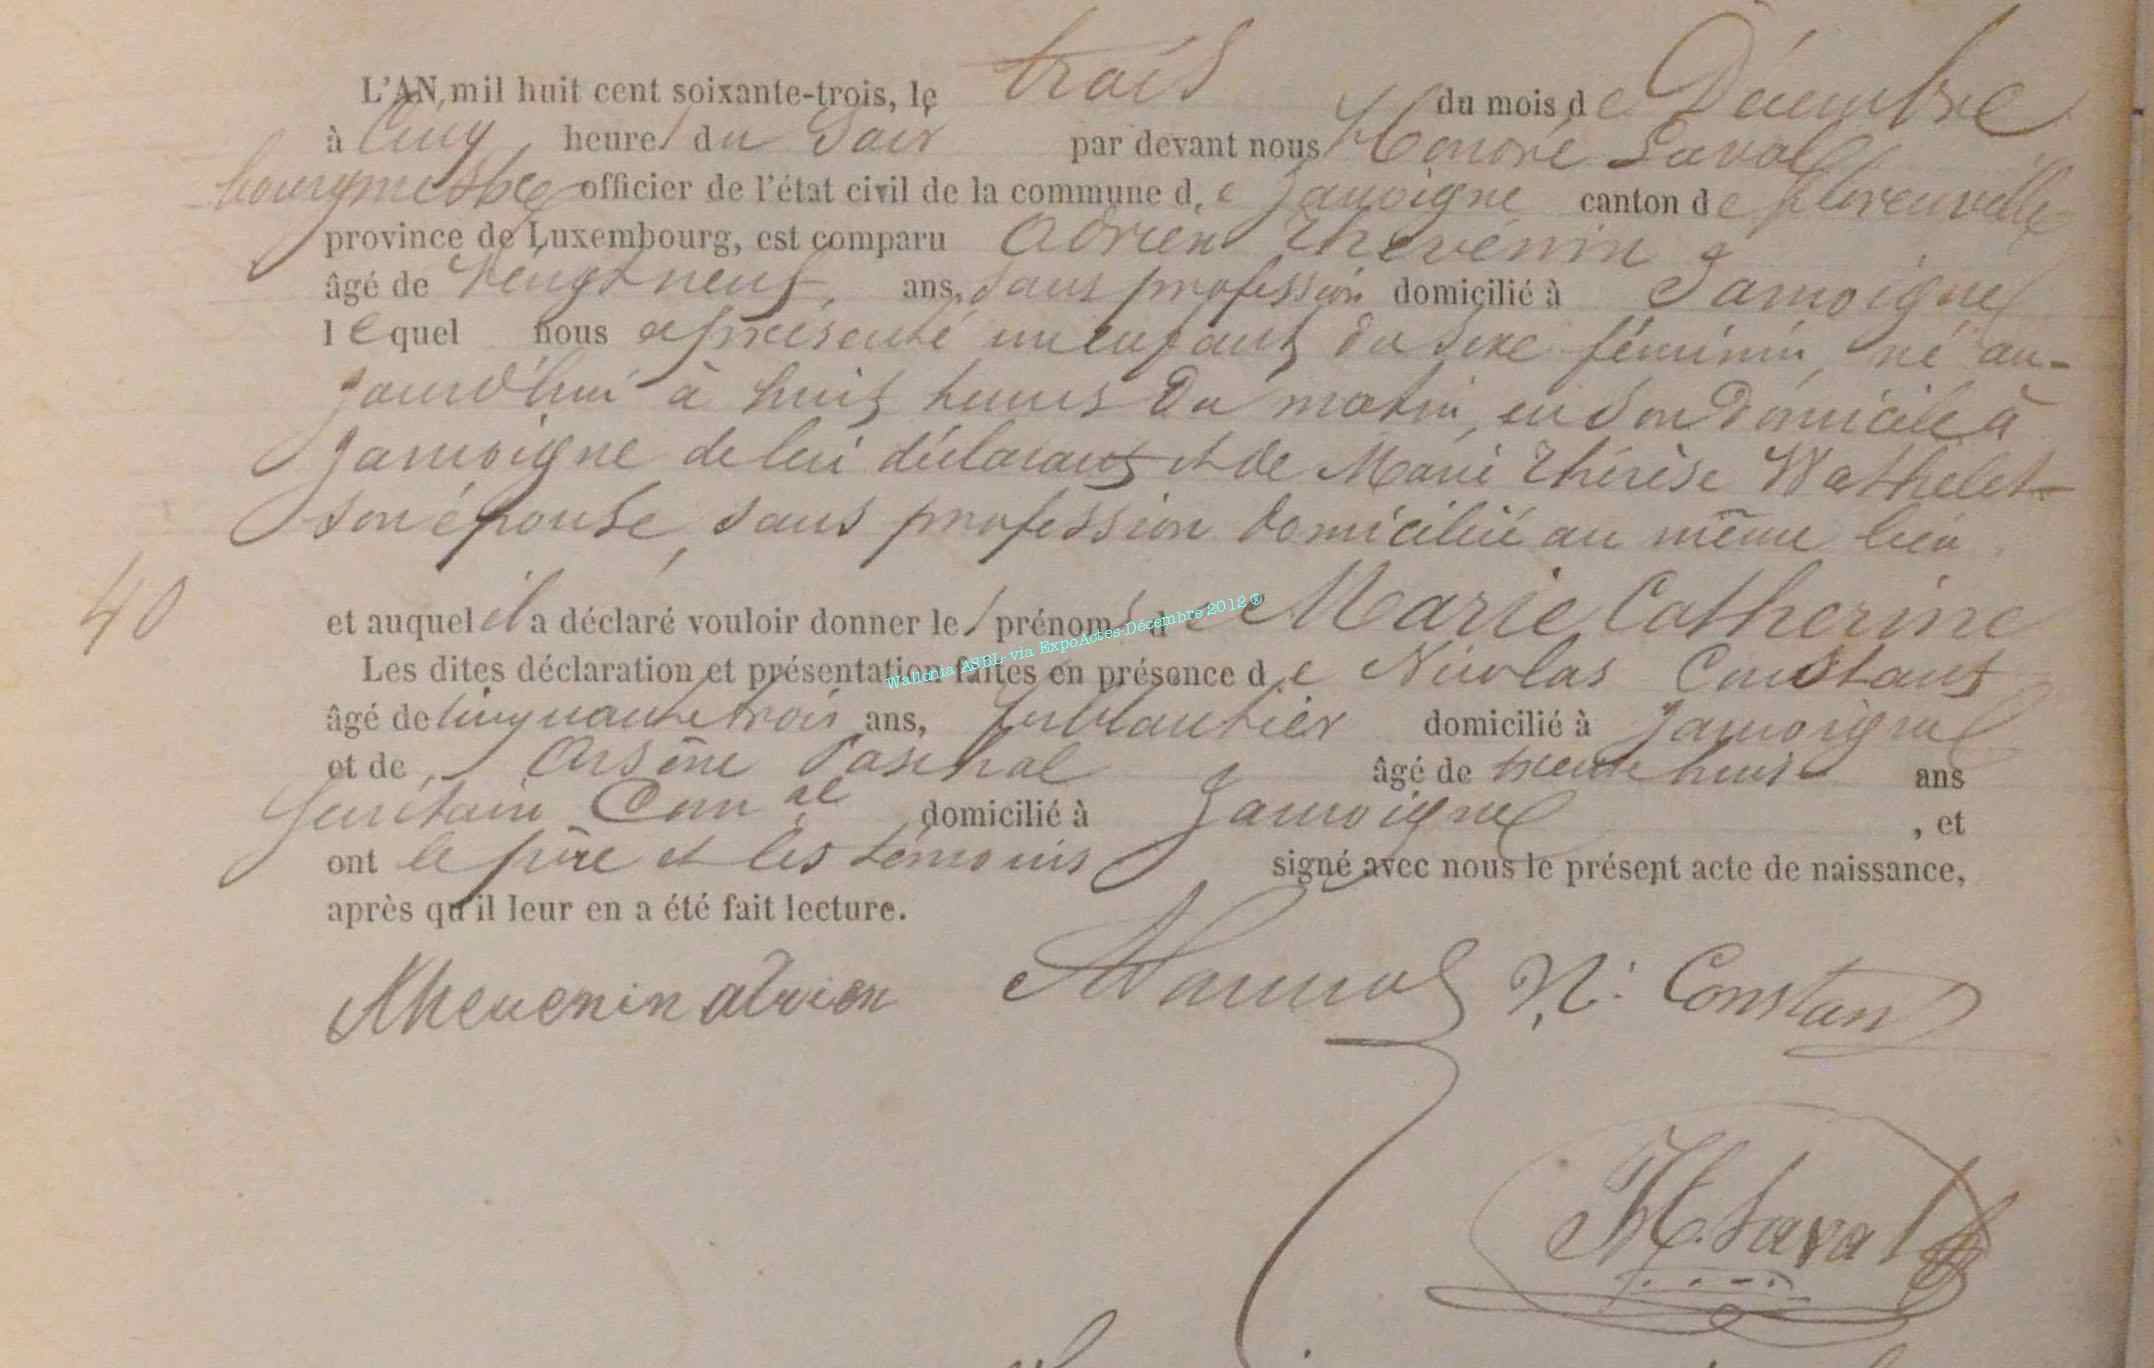 L'AN mil huit cent soixante-trois, le trois du mois de Décembre
à Cinq heures du Soir par devant nous Honoré Laval
bourgmestre officier de l'état civil de la commune de Jamoigne canton de Florenville
province de Luxembourg, est comparu Adrien Thévénin
âgé de Vingt neuf, ans, sans profession domicilié à Jamoigne
lequel nous a présenté un enfant du sexe féminin, né au-
jourd'hui à huit heures du matin, en son domicile à
Jamoigne de lui déclarant et de Marie Thérèse Wathelet
son épouse, sans profession domiciliée au même lieu
40
et auquel il a déclaré vouloir donner les prénoms de Marie Catherine
Les dites déclaration et présentation faites en présence de Nicolas Constant
âgé de cinquante trois ans, ferblantier domicilié à Jamoigne
et de Arsène Paschal âgé de trente huit ans
Secrétaire Comal domicilié à Jamoigne , et
ont le père et les témoins signé avec nous le présent acte de naissance,
après qu'il leur en a été fait lecture.
Thevenin adrien N: Constant
H. Laval
Wallonia ASBL- via ExpoActes-Décembre 2012 ®